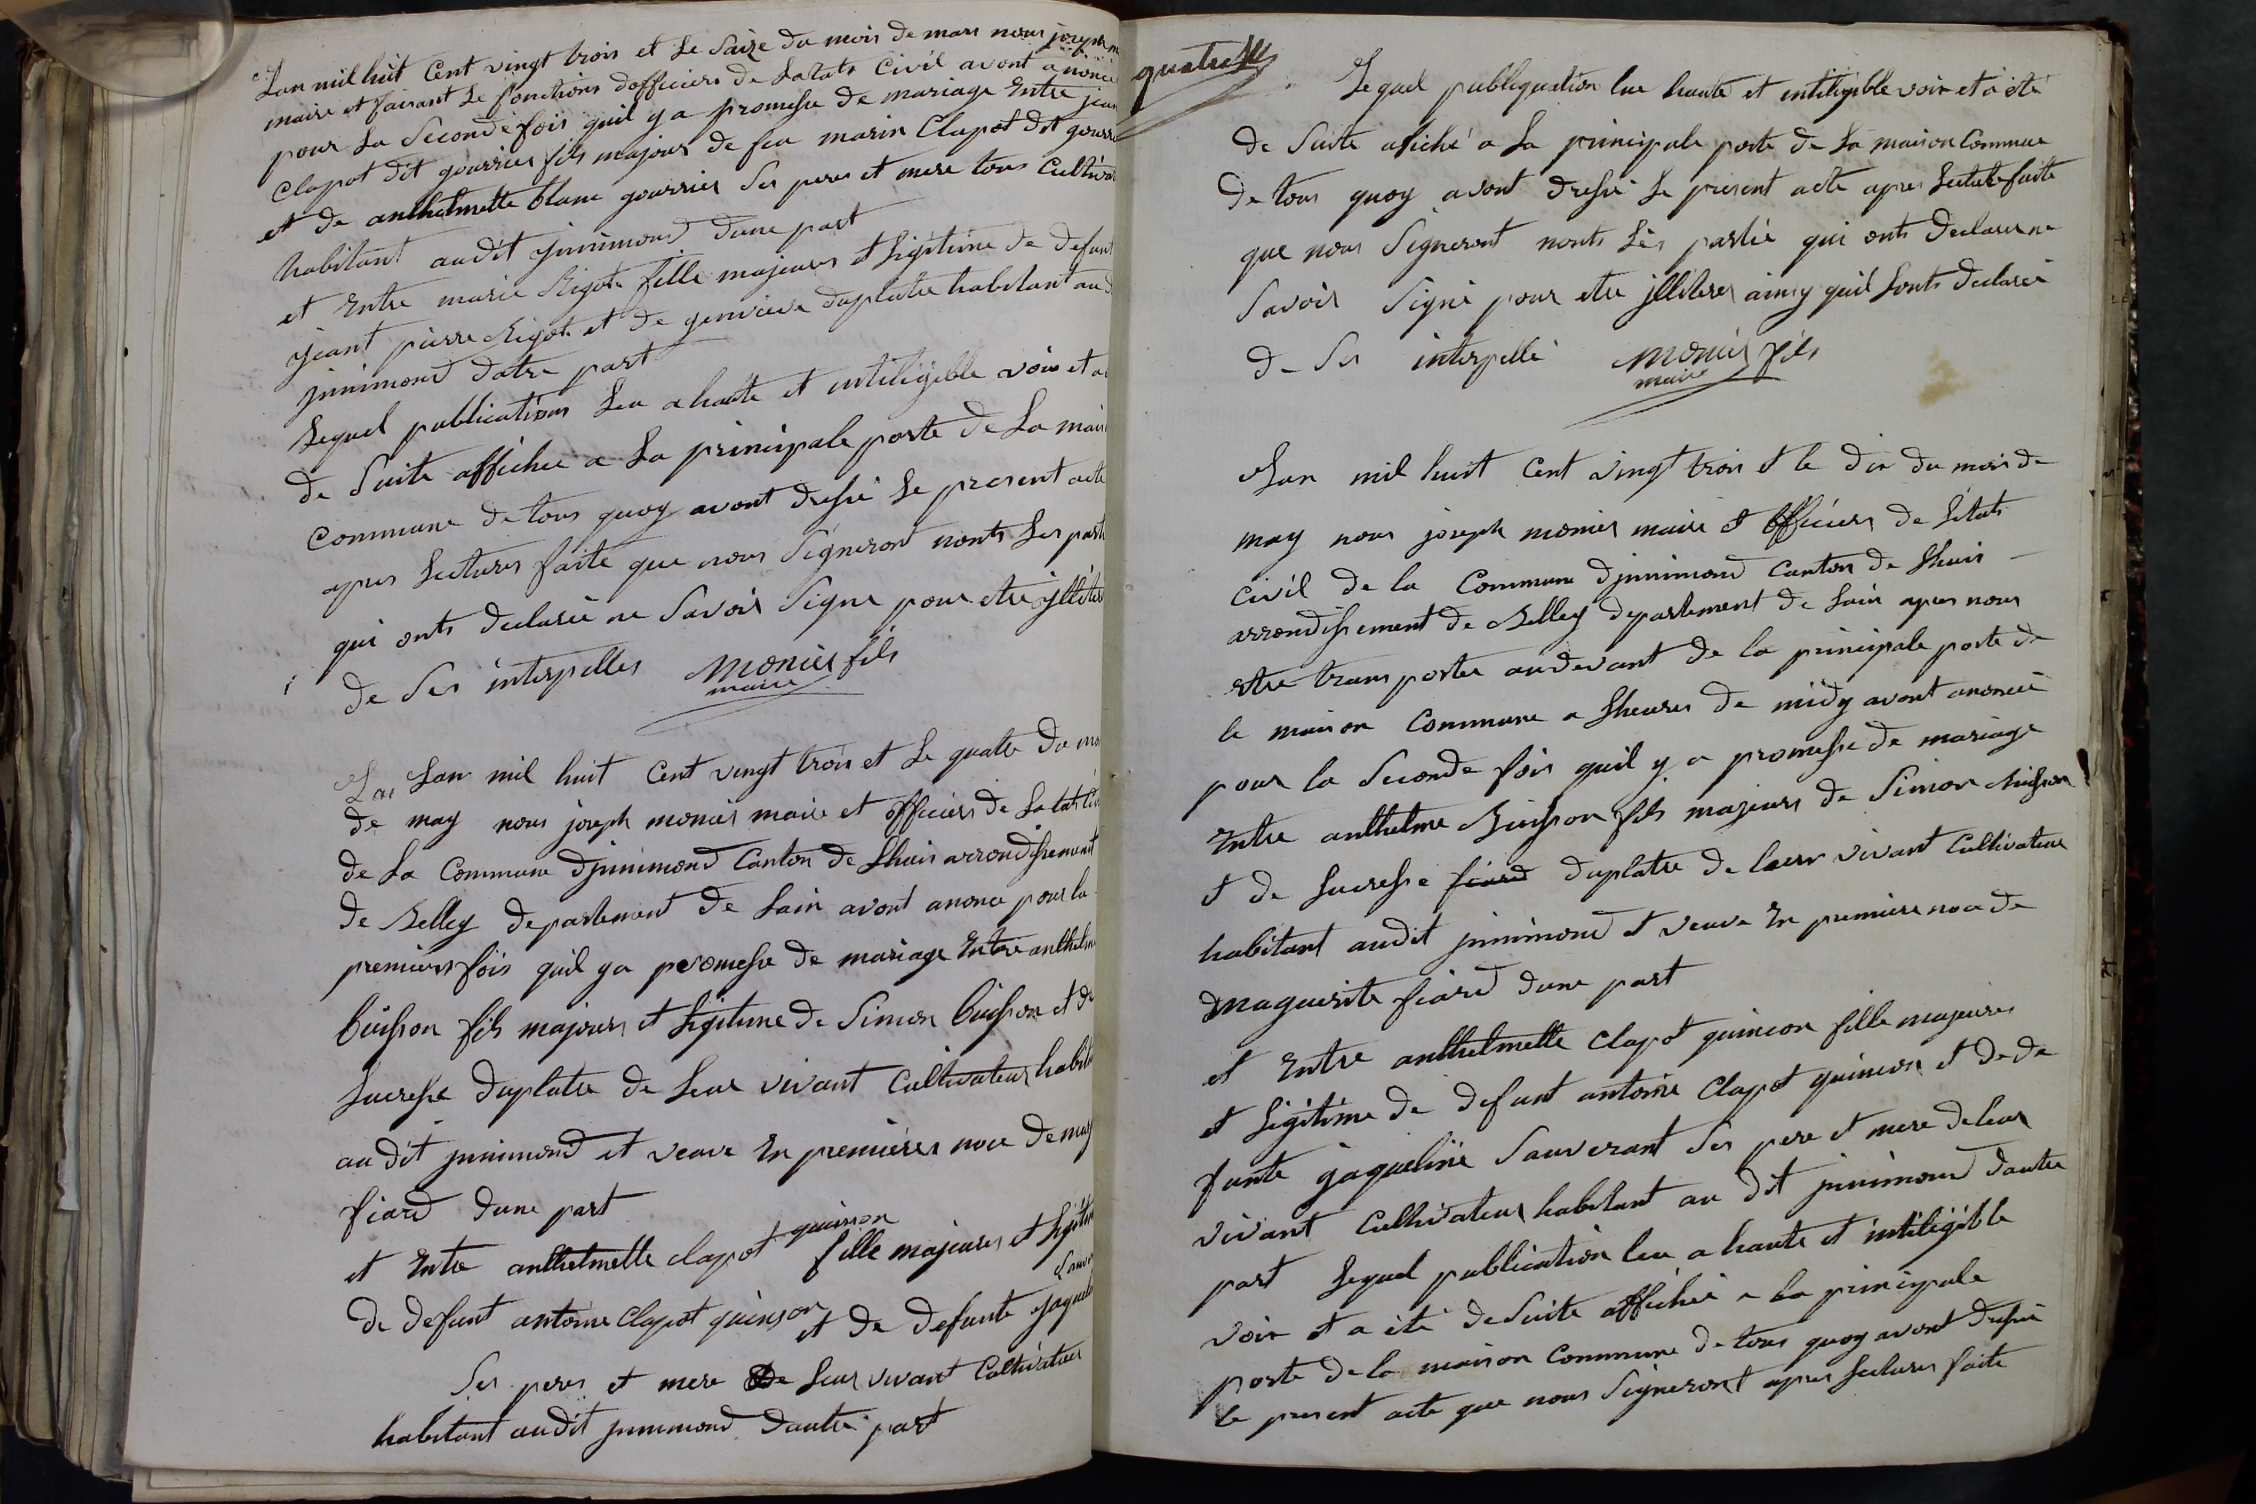 Lan mil huit Cent vingt trois et le Saize du mois de mars nous joseph
maire et faisant le fonctions dofficiers de Latats Civil avont anoncé
pour La Seconde fois quil y a promesse de mariage Entre jean
Clapot dit gourrier fils majeur de feu marin Clapot dit gourri
et de anthelmette blanc gourrier Ses peres et mere tous Cultivat
habitant audit jnnimond dune part
et Entre marie Rigot fille majeures et Ligitime de defunt
jeant pierre Rigot et de genvieve duplatre habitant aud
jnnimond datre part
Lequel publications Leu a haute et intiligible voix et a
de Suite affichee a La principale porte de La mais
Commune de tous quoy avont dressé Le present acte
apres Lectures faite que nous Signeront nonts Les part
qui onts declarée ne Savoir Signe pour etre jlliteré
de Ses interpelles monier fils
maire
Lan mil huit Cent vingt trois et Le quatre du moi
de may nous joseph monier maire et officiers de Latats Civ
de La Commune djnnimond Canton de Lhuis arrondissement
de Belley departement de Lain avont anonce pour la
premiers fois quil ya promesse de mariage Entre anthelm
buisson fils majeurs et Ligitime de Simon buisson et de
Lucresse Duplatre de Leur vivant Cultivateur habit
au dit jnnimond et veuve En premières noce de marg
fiard dune part
quinson
et Entre anthelmette clapot fille majeures et Ligitim
Sauv
de defunt antoine Clapot quinson et de defunte jaquel
Ses peres et mere de Leur vivant Cultivateur
habitant audit jnnimond dautre part
quatre
Lequel publiquation lue haute et intiligible voix et a été
de Suite afiché a La principale porte de La maison Commune
de tous quoy avont dressé Le present acte apres Lecture faite
que nous Signeront nonts Les partie qui onts declarer ne
Savoir Signé pour etre jlliteres ainsy quil Sonts declarée
de Ses interpellé monier fils
maire
Lan mil huit Cent vingt trois et le dix du mois de
may nous joseph monier maire et officiers de Létats
Civil de la Commune djnnimond Canton de Lhuis
arrondissement de Belley departement de Lain apres nous
etre transporter audevant de la principale porte de
la maison Commune a Lheures de midy avont anoncée
pour la Seconde fois quil y a promesse de mariage
Entre anthelme Buisson fils majeurs de Simon Buisson
et de Lucresse fiard duplatre de leur vivant Cultivateur
habitant audit jnnimond et veuve En premiere noce de
maguerite fiard dune part
et Entre anthelmette clapot quinson fille majeures
et Ligitime de defunt antoine Clapot quinson et de de
funte jaqueline Sauverant Ses pere et mere de leur
vivant Cultivateur habitant au dit jnnimond dautre
part Lequel publication leu a haute et intiligible
voix et a été de Suite affichée a la principale
porte de la maison Commune de tous quoy avont dressé
le present acte que nous Signeront apres Lectures faite